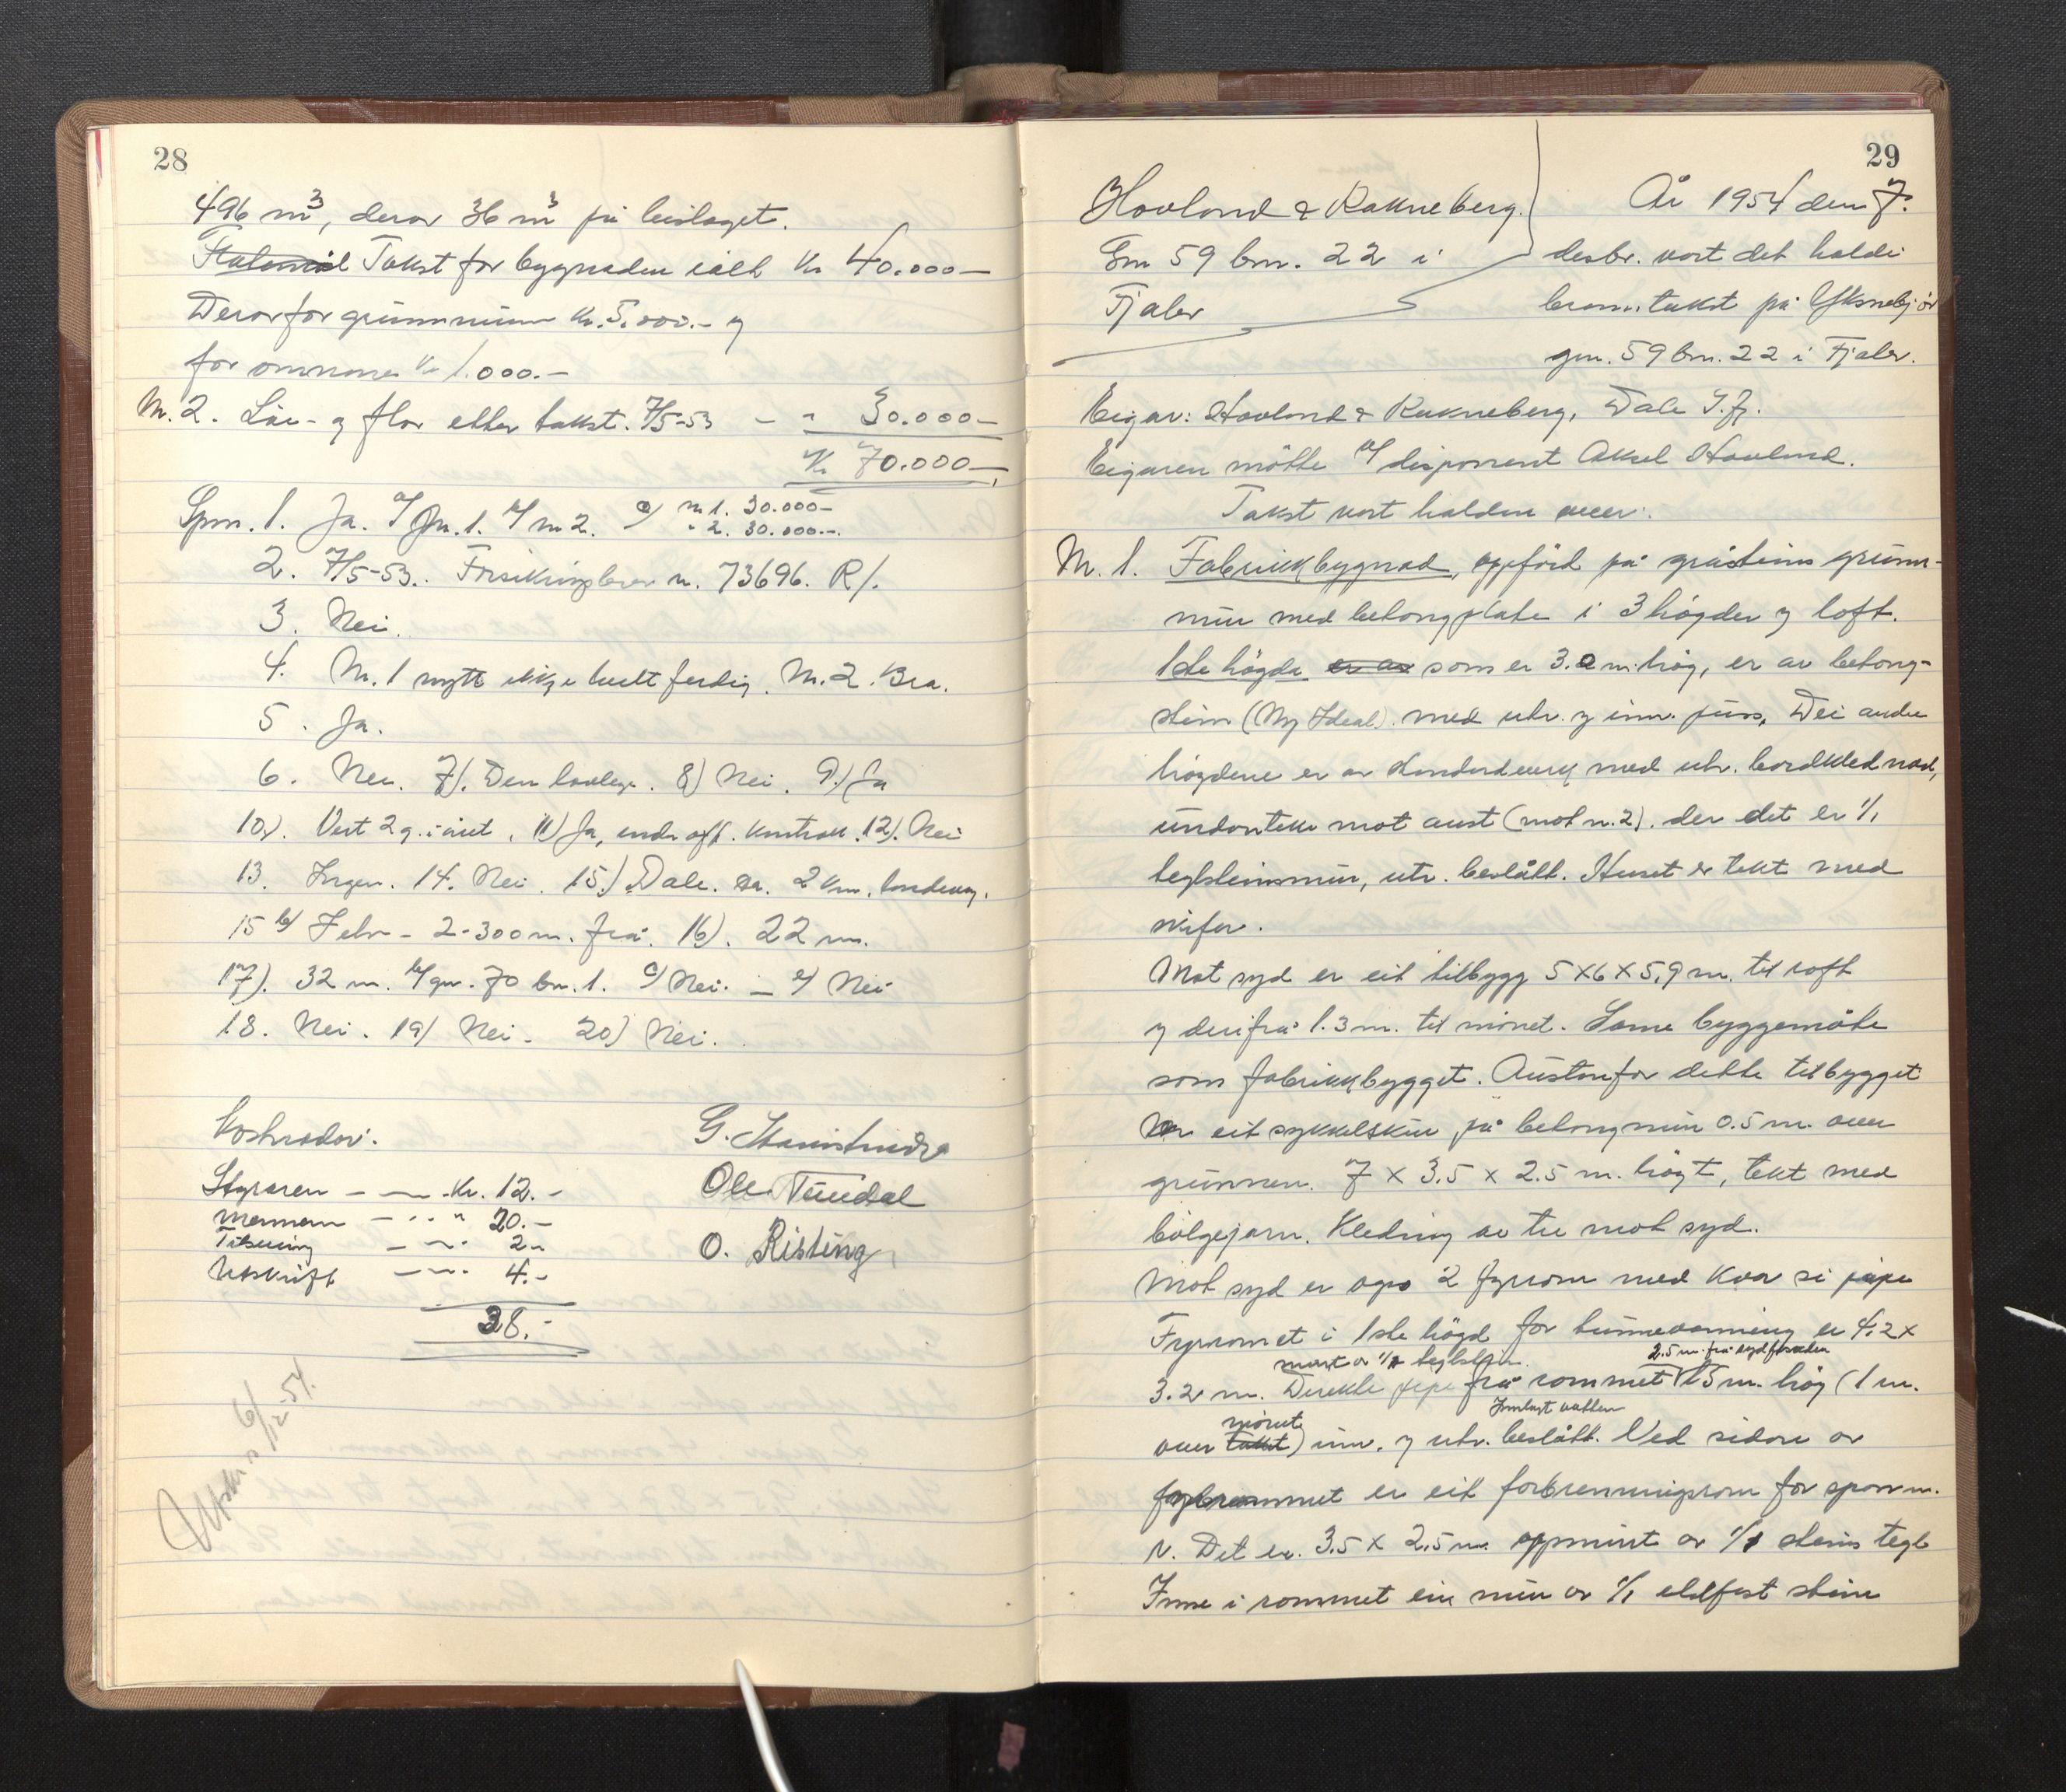 28
496 m³, derav 36 m³ på bislaget.
Takst for bygnaden ialt Kr 40.000—
Derav for grunnmur Kr. 5.000.- og
for omnane Kr 1.000.—
N. 2. Löe- og flor etter takst. 7/5-53 — " 30.000—
Kr 70.000—
Spm. 1. Ja. n. 1. n 2. c) n 1. 30.000—
" 2. 30.000—.
2. 7/5-53. Forsikringsbrev n. 73696. R/.
3. Nei.
4. N. 1 nytt ikkje heilt ferdig. N. 2. Bra.
5. Ja.
6. Nei. 7). Den lovlege. 8) Nei. 9.) Ja
10). Vert 2 g. i året. 11) Ja, under off. kontroll. 12). Nei
13. Ingen. 14. Nei. 15.) Dale. ca. 2 km. landeveg.
15 b) Elv - 2-300 m. frå. 16). 22 m.
17). 32 m. b) gn. 70 bn. 1. c) Nei. — e) Nei
18. Nei. 19) Nei. 20) Nei.
Kostnader:
Styraren — — Kr. 12.-
Mennene — " " 20.—
Tilsening — " 2.-
Utskrift — " 4.-
38.-
G.
Ole Tundal
O. Risting
Utskr. 6/12-54.
29
Hovland & Rakneberg.
Gn 59 bn. 22 i
Fjaler
År 1954 den 7.
desbr. vart det halde
branntakst på Yksnebjör
gn. 59 bn. 22 i Fjaler.
Eigar: Hovland & Rakneberg, Dale S.fj.
Eigaren mötte v/ disponent Aksel Hovland.
Takst vart halden over:
N. 1. Fabrikkbygnad, oppförd på gråsteins grunn-
mur med betongplate i 3 högder og loft.
1ste högda er av som er 3.0 m. hög, er av betong-
stein (Ny Ideal) med utv. og innv. puss. Dei andre
högdene er av standardverk med utv. bordklednad,
undanteke mot aust (mot n. 2). der det er 1/1
teglsteinsmur, utv. beslått. Huset er tekt med
skifer.
Mot syd er eit tilbygg 5 x 6 x 5,9 m. til raft
og derifrå 1.3 m. til mönet. Same byggemåte
som fabrikkbygget. Austanfor dette tilbygget
er eit sykkelskur på betongmur 0.5 m. over
grunnen. 7 x 3.5 x 2.5 m. högt, tekt med
bölgejarn. Kledning av tre mot syd.
Mot syd er ogso 2 fyrrom med kvar si pipe
Fyrromet i 1ste högd for tunnevarming er 4.2 x
murt av 1/1 teglstein. 2.5 m. frå sydfasaden
3.2 m. Direkte pipe frå rommet 13 m. hög (1 m.
mönet Innlagt vatten
over takst) innv. og utv. beslått. Ved sidon av
fyrrommet er eit forbrenningsrom for spon m.
v. Det er 3.5 x 2.5 m. oppmurt av 1/1 steins tegl
Inne i rommet ein mur av 1/1 eldfast stein